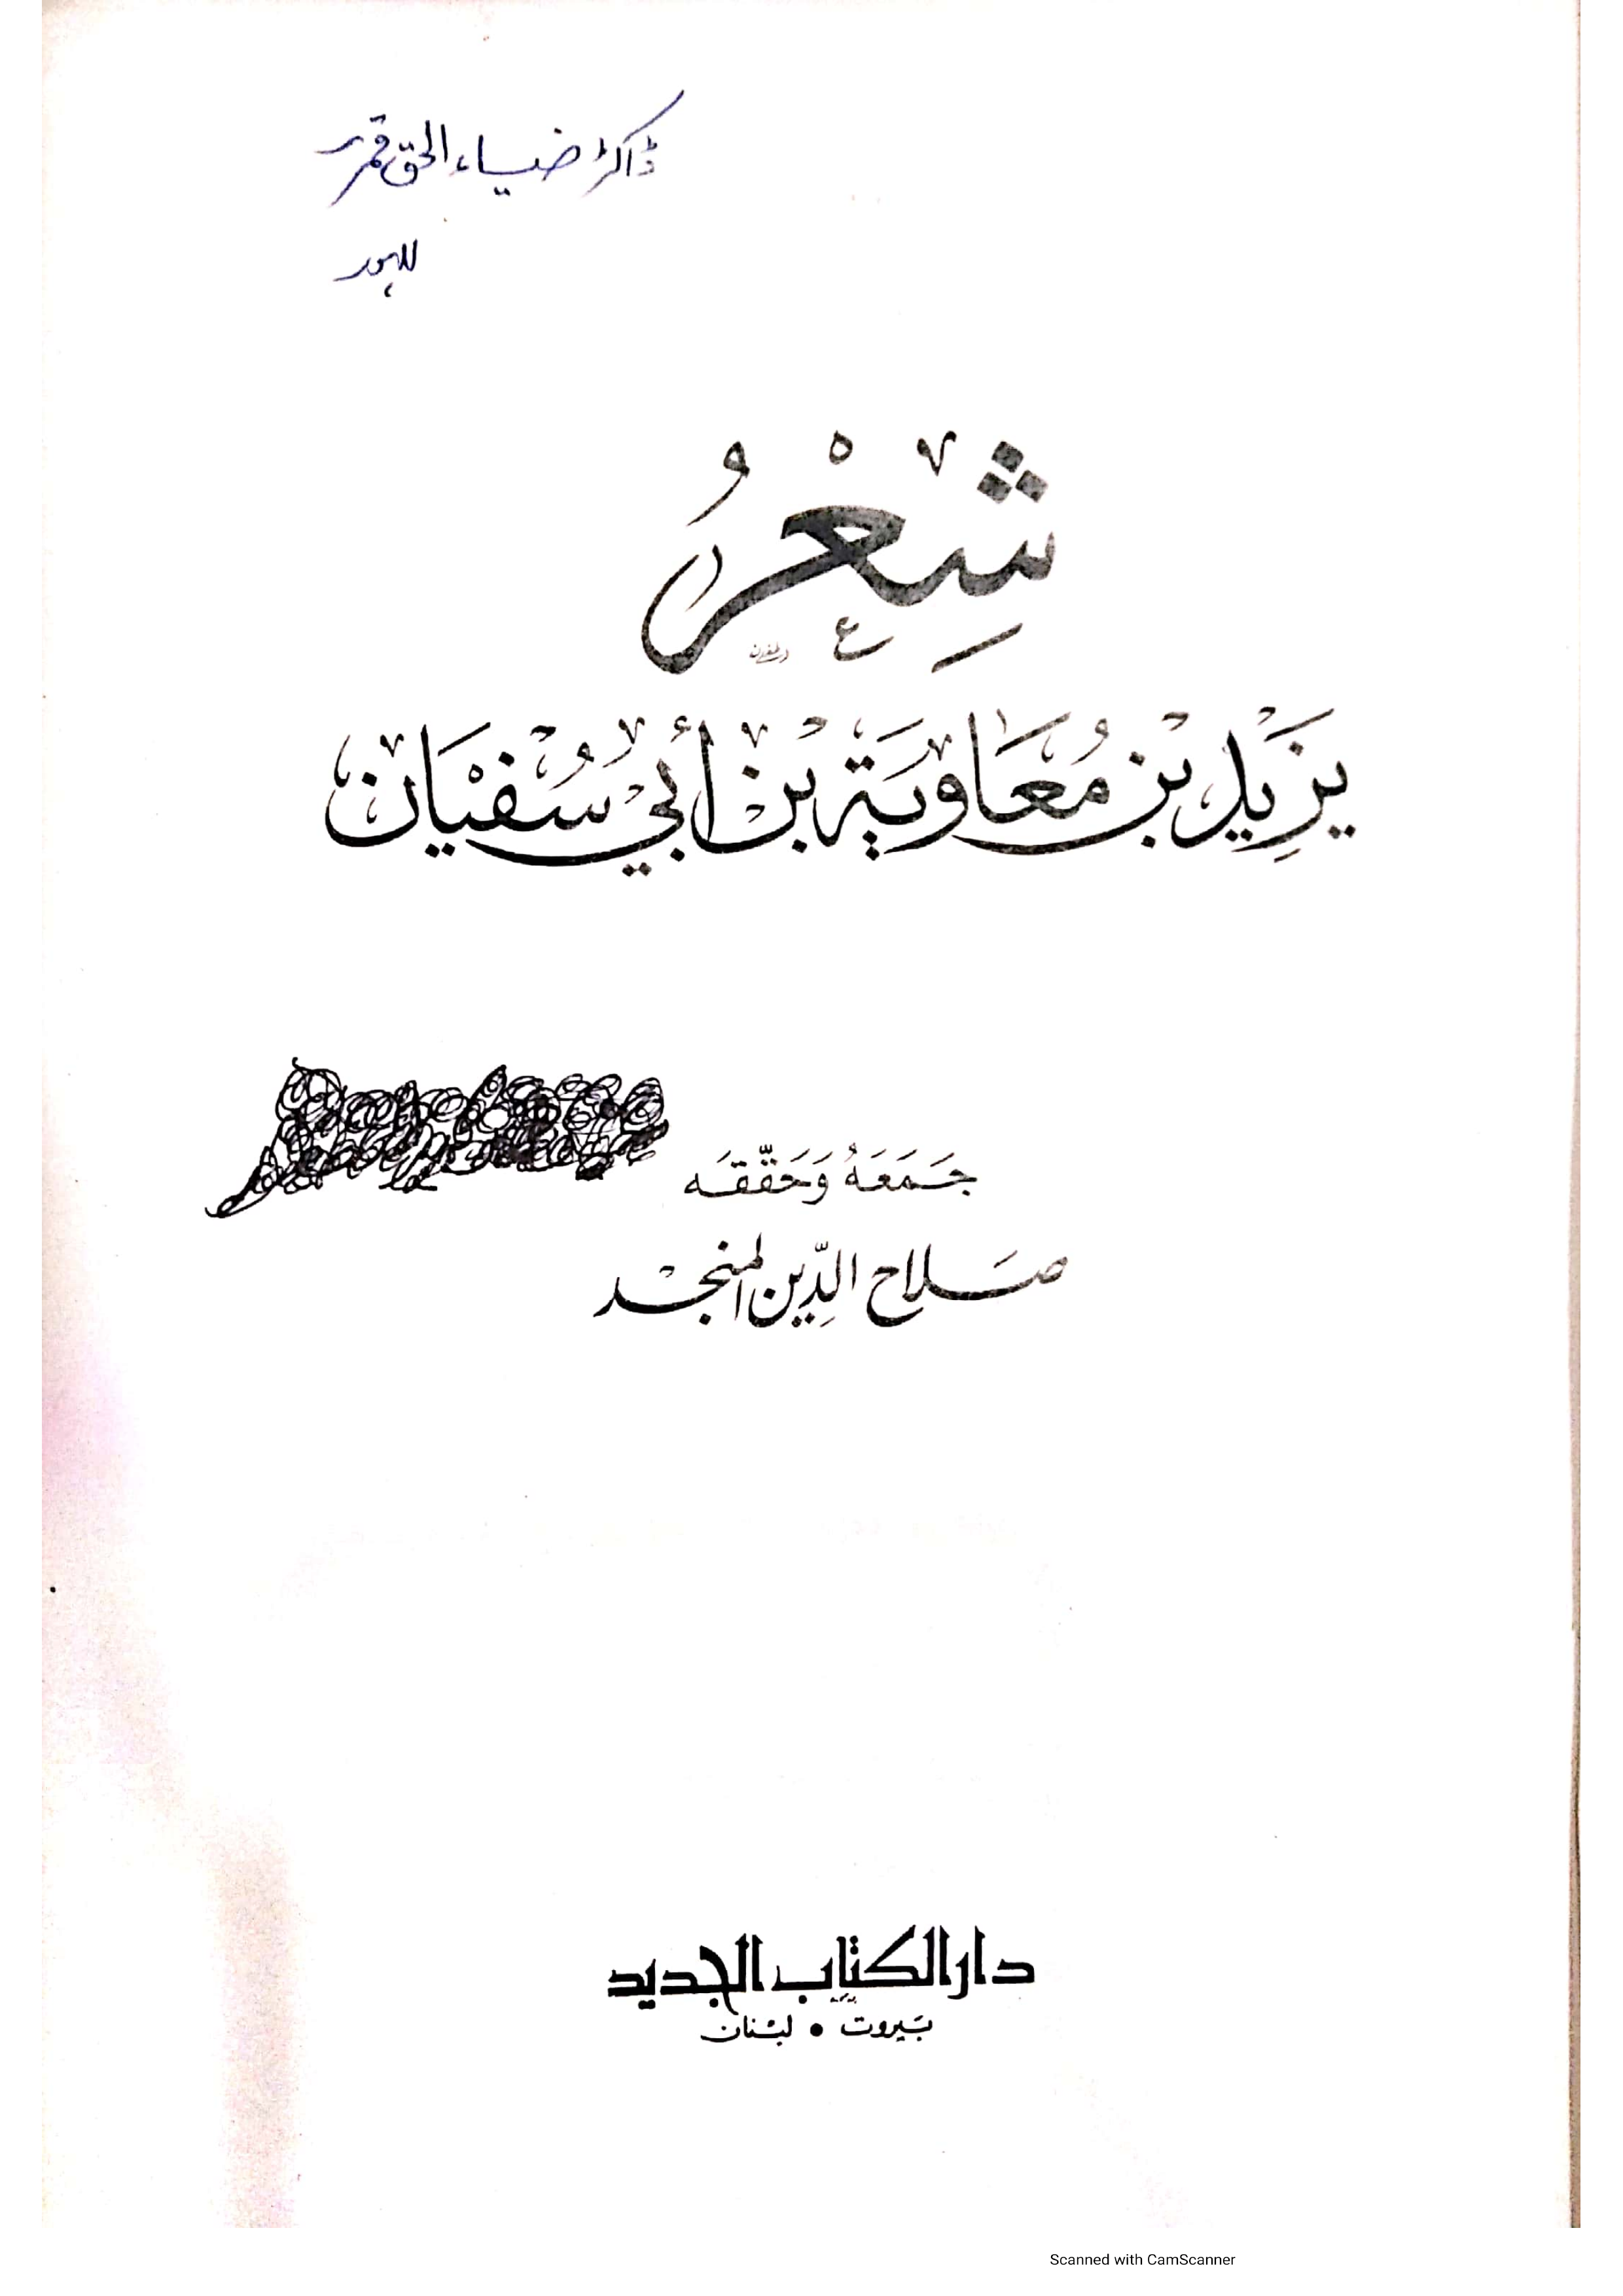 ڈاکٹر ضیاء الحق قمر
لاہور
شِعْرُ
يَزِيد بن مُعَاوِيَة بْن أَبِي سُفْيَان
جَمَعَهُ وَحَقَّقَه
صَلاح الدِّين المنجد
دار الكتاب الجديد
بَيروت • لبْنان
Scanned with CamScanner